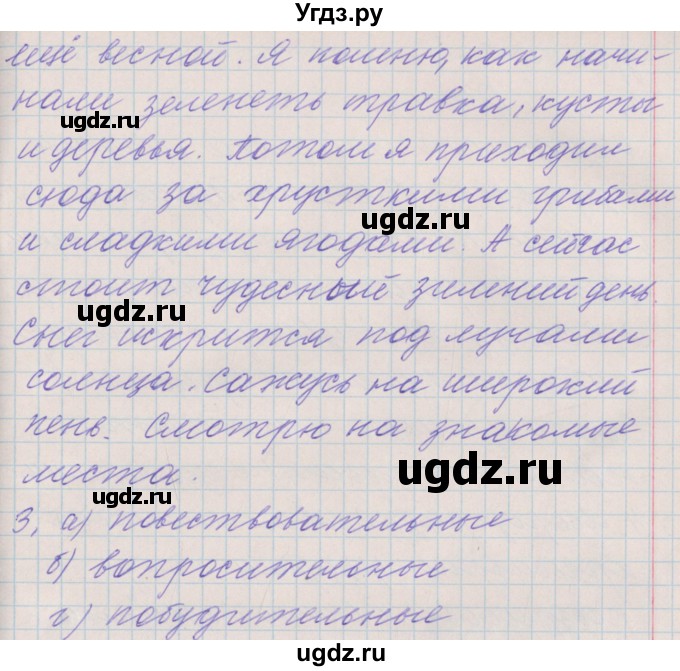 Угдз.ру
ещё весной. Я помню, как начи-
нали зеленеть травка, кусты
ugdz.ru
и деревья. Потом я приходил
сюда за хрусткими грибами
ugdz.ru
и сладкими ягодами. А сейчас
стоит чудесный зимний день.
ugdz.ru
Снег искрится под лучами
солнца. Сажусь на широкий
пень. Смотрю на знакомые
ugdz.ru
места.
ugdz.ru
3, а) повествовательные
б) вопросительные
г) побудительные
ugdz.ru